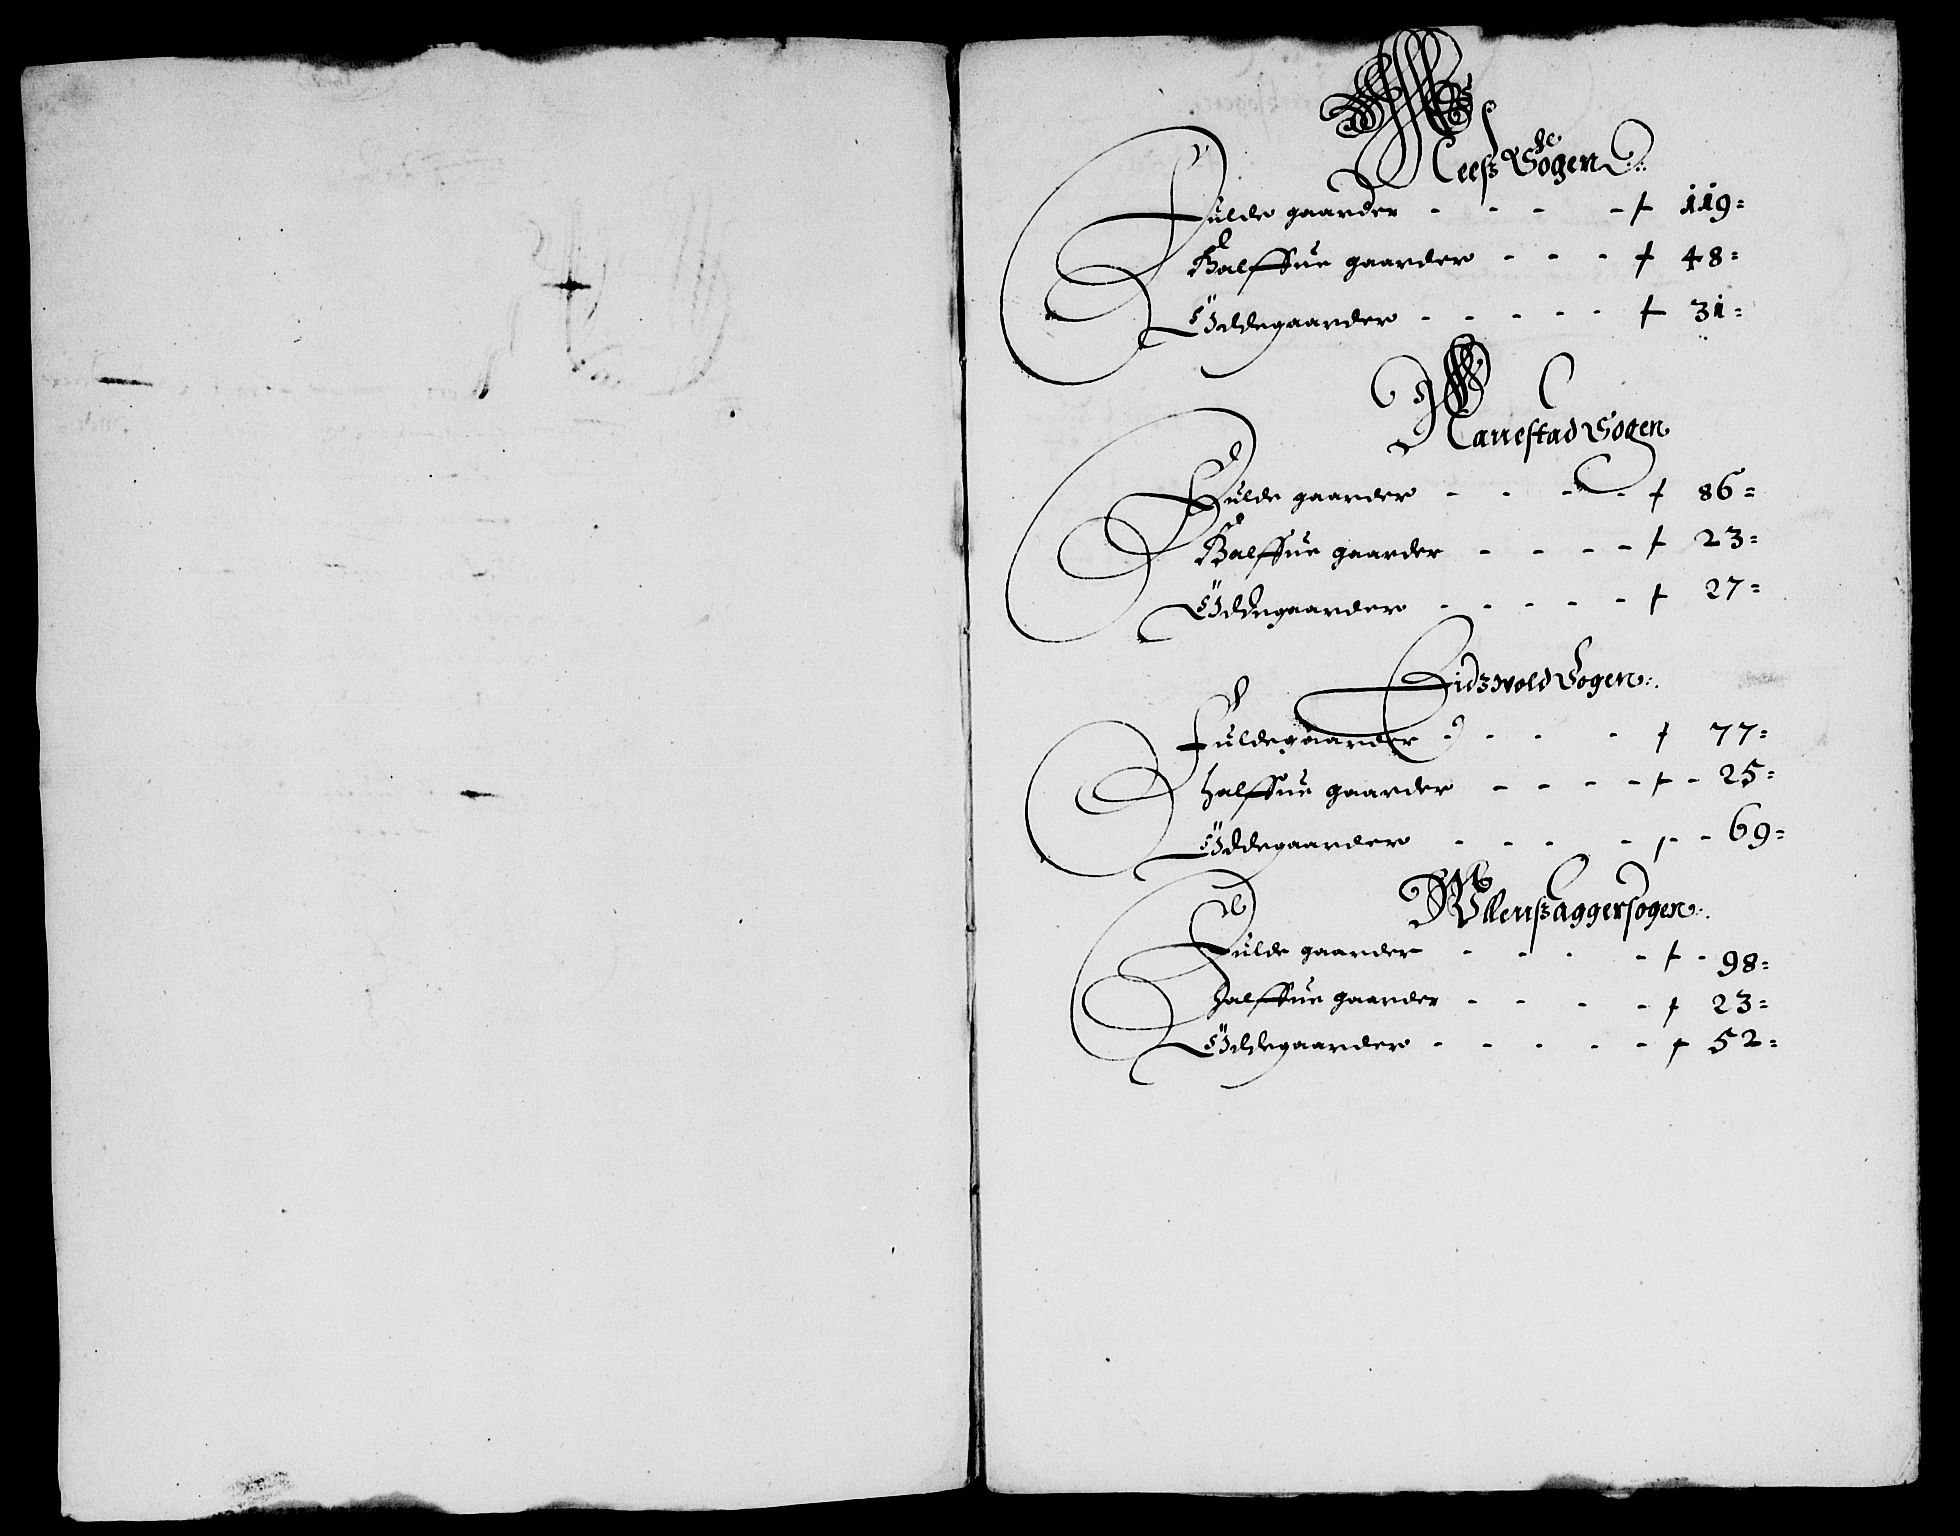 Neeß Sogen
Fulde gaarder - - - - + 119=
Halffue gaarder - - - + 48=
Ödegaarder - - - - - + 31=
Nannestad Sogen
Fulde gaarder - - - - + 86=
Halffue gaarder - - - - + 23=
Ödegaarder - - - - - + 27=
Eidzwold Sogen
Fuldegaarder - - - - + 77=
halffue gaarder - - - - + - 25=
Ödegaarder - - - - + - 69=
Ullenßaggersogen
Fulde gaarder - - - - + - 98=
halffue gaarder - - - - + 23=
Ödegaarder - - - - - + 52=